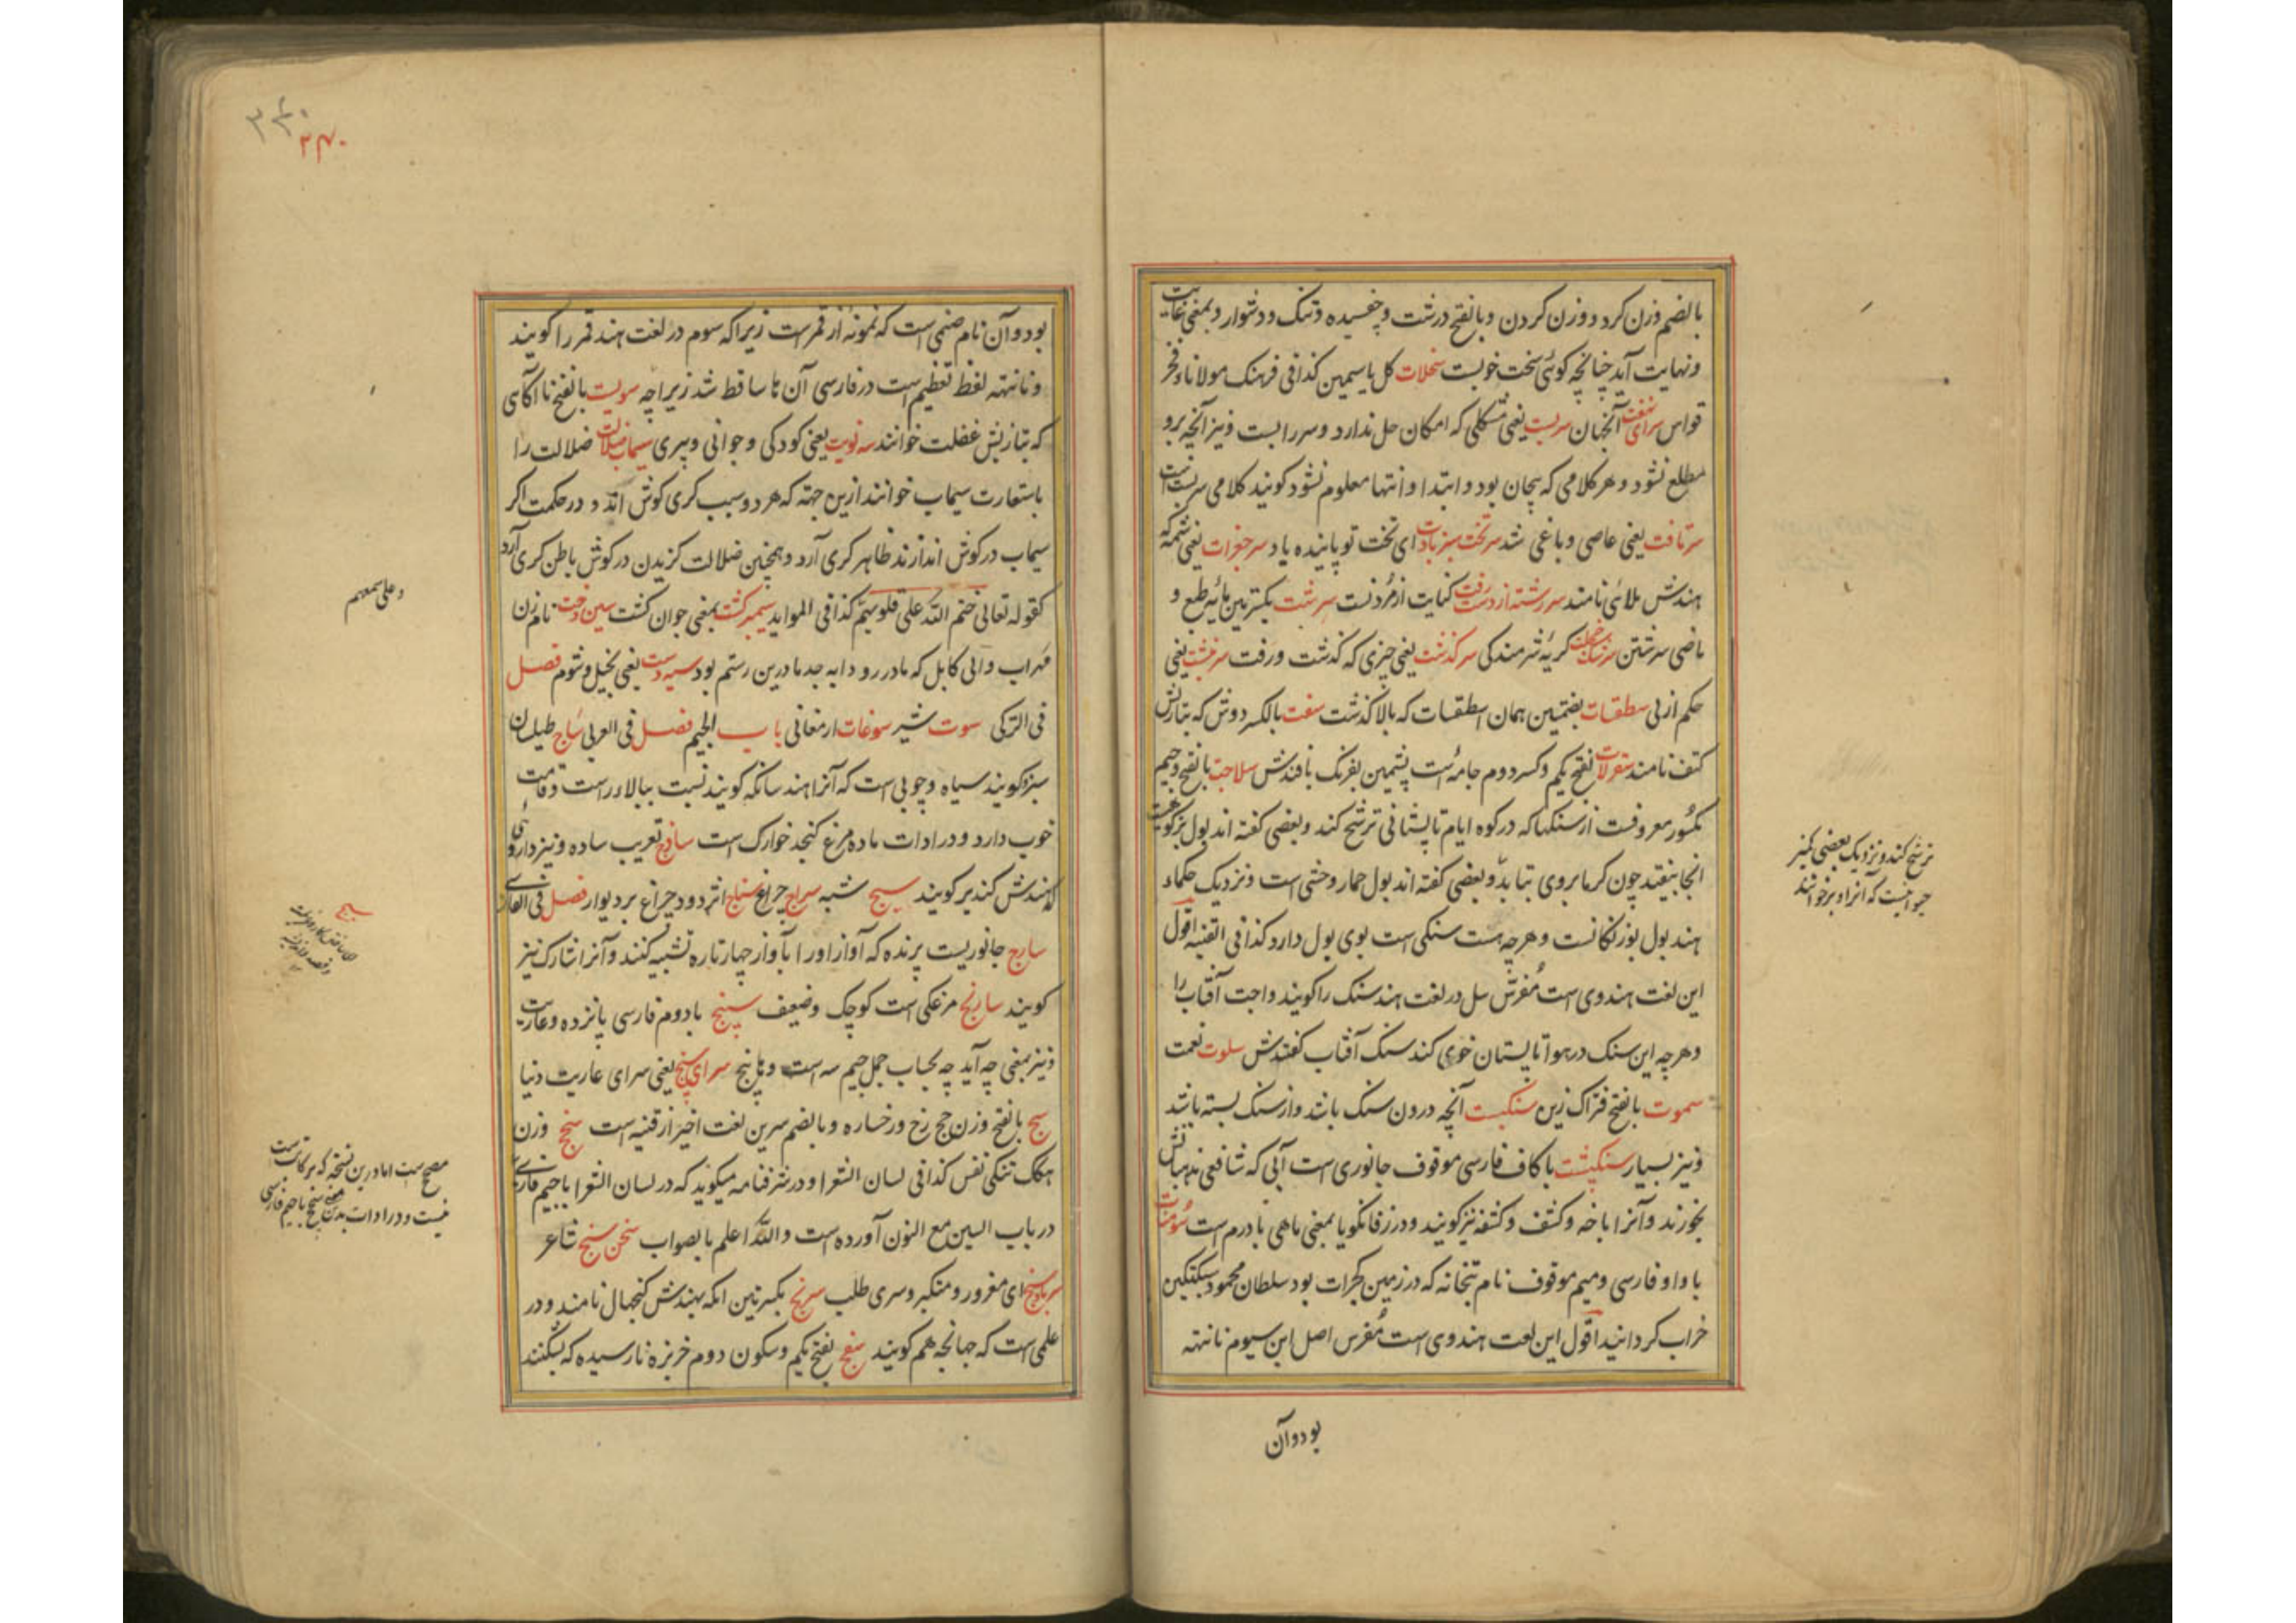 بالضم وزن کرد و وزن کردن و بالفتح درشت و چفسیده و تنک و دشوار و بمعنی غایت
و نهایت آید چنانچه کوئی سخت خوبست سخلات کل یاسمین کذا فی فرهنک مولانا فخر
قواس سرای نهفت آنجهان سربست یعنی مشکلی که امکان حل ندارد و سر را بست و نیز آنچه برو
مطلع نشود و هر کلامی که پیچان بود و ابتدا و انتها معلوم نشود کویند کلامی سربست است
سرتافت یعنی عاصی و باغی شد سر تخت سبز بادت ای تخت تو پاینده باد سر جغرات یعنی شمه که
هندش ملائی نامند سر رشته از دست رفت کنایت از مردنست سرشت بکسرتین مایه طبع و
ماضی سرشتن سرشک خجلت کریه شرمندکی سرکذشت یعنی چیزی که کذشت و رفت سرنبشت یعنی
حکم ازلی سطقسات بضمتین همان اسطقسات که بالا کذشت سفت بالکسر دوش که بتازیش
کتف نامند سقرلات بفتح یکم و کسر دوم جامه ایست پشمین بفرنک بافندش سلاجت بالفتح و جیم
مکسور معروفست از سنکها که در کوه ایام تابستانی ترشح کند و بعضی کفته اند بول بز کوهیست
انجا بیفتد چون کرما بروی بتابد و بعضی کفته اند بول حمار وحشی است و نزدیک حکماء
هند بول بوزنکانست و هرچه هست سنکی است بوی بول دارد کذا فی القنیه اقول
این لغت هندوی است مفرس سل در لغت هند سنک را کویند و اجت آفتاب را
و هرچه این سنک در هوا تابستان خوی کند سنک آفتاب کفتندش سلوت نعمت
سموت بالفتح فتراک زین سنکبت آنچه درون سنک باشد و از سنک بسته باشد
و نیز بسیار سنکپشت با کاف فارسی موقوف جانوری است آبی که شافعی مذهبانش
بخورند و آنرا باخه و کشف و کشفه نیز کویند و در زفانکویا بمعنی ماهی با درم است سومنات
با واو فارسی و میم موقوف نام بتخانه که در زمین کجرات بود سلطان محمود سبکتکین
خراب کردانید اقول این لغت هندوی است مفرس اصل این سیوم نانته
بود و آن
ترشح کند و نزدیک بعضی کمیز
حیوانیست که آنرا وبر خوانند
۳۴۰
۳۴۰
بود و آن نام صنمی است که نمونه از قمر است زیرا که سوم در لغت هند قمر را کویند
و نانته لفظ تعظیم است در فارسی آن ها ساقط شد زیراچه سویت بالفتح نا آکاهی
که بتازیش غفلت خوانند سه نوبت یعنی کودکی و جوانی و پیری سیماب ضلالت ضلالت را
باستعارت سیماب خوانند ازین جهته که هر دو سبب کری کوش اند و در حکمت اکر
سیماب در کوش اندازند ظاهر کری آرد و همچنین ضلالت کزیدن در کوش باطن کری آرد
کقوله تعالی ختم الله علی قلوبهم کذا فی الموائد سیمبر کشت بمعنی جوان کشت سین دخت نام زن
مهراب والی کابل که مادر رودابه جد مادرین رستم بود سیه دست یعنی بخیل و شوم فصل
فی الترکی سوت شیر سوغات ارمغانی باب الجیم فصل فی العربی ساج طیلسان
سبز و کویند سیاه و چوبی است که آنرا هند سانکه کویند نسبت ببالاء راست و قامت
خوب دارد و در ادات ماده مرغ کنجد خوارک است ساذج تعریب ساده و نیز داروئی
که هندش کندیر کویند سبج شبه سراج چراغ سناج اثر دود چراغ بر دیوار فصل فی الفارسی
سارج جانوریست پرنده که آواز او را با آواز چهارتاره تشبیه کنند و آنرا شارک نیز
کویند سارنج مرغکی است کوچک و ضعیف سپنج با دوم فارسی پانزده و عاریت
و نیز بمعنی چه آید چه بحساب جمل جیم سه است و با پنج سرای سپنج یعنی سرای عاریت دنیا
سج بالفتح وزن حج رخ و رخساره و بالضم سرین لغت اخیر از قنیه است سنج وزن
هکک تنکی نفس کذا فی لسان الشعرا و در شرفنامه میکوید که در لسان الشعرا با جیم فارسی
در باب السین مع النون آورده است والله اعلم بالصواب سخن سنج شاعر
سر باد سنج ای مغرور و متکبر و سری طلب سرنج بکسرتین انکه بهندش کنجهال نامند و در
علمی است که جهانجه هم کویند سفج بفتح یکم و سکون دوم خربزه نارسیده که بشکنند
و علی سمعهم
سبج
مصحح است اما درین نسخه که بر کاتبست
نیست و در ادات بدین معنی سنج با جیم فارسی